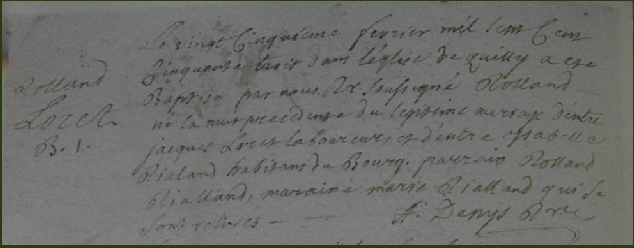 Le vingt Cinquieme fevrier mil sept Cent
Cinquante trois dans l'eglise de quilly a ete
Rolland
Baptisé par nous soussigné Rolland
Loret
né la nuit precedente du legitime mariage d'entre
B. 1.
jacques Loret laboureur, et d'entre Isabelle
Rialand habitans du Bourg. parrain Rolland
Rialland, maraine marie Rialland qui se
sont retires
F. Denys Ptre